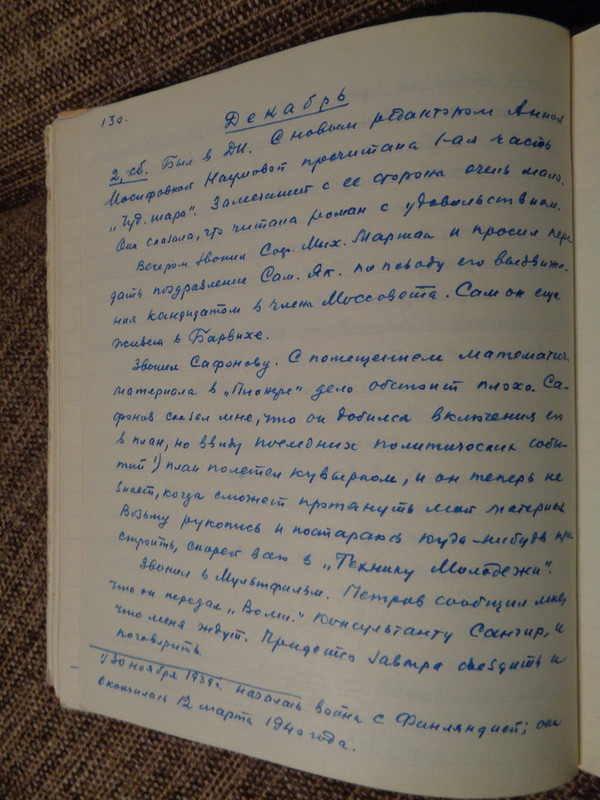 130.
Декабрь
2, сб. Был в ДИ. С новым редактором Анной
Иосифовной Наумовой прочитана 1-ая часть
„Чуд. шара". Замечаний с ее стороны очень мало.
Она сказала, что читала роман с удовольствием.
Вечером звонил Сод. Мих. Маршак и просил пере-
дать поздравление Сам. Як. по поводу его выдвиже-
ния кандидатом в члены Моссовета. Сам он еще
живет в Барвихе.
Звонил Сафонову. С помещением математич.
материала в „Пионере" дело обстоит плохо. Са-
фонов сказал мне, что он добился включения его
в план, но ввиду последних политических собы-
тий 1) план полетел кувырком, и он теперь не
знает, когда сможет протянуть мой материал.
Возьму рукопись и постараюсь куда-нибудь при-
строить, скорей всего в „Технику Молодежи".
Звонил в Мультфильм. Петров сообщил мне,
что он передал „Волш." консультанту Сангир, и
что меня ждут. Придется завтра съездить и
поговорить.
1) 30 ноября 1939 г. началась война с Финляндией; она
окончилась 12 марта 1940 года.